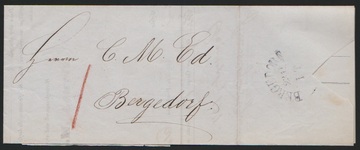 Herrn C. M. Ed.
Bergedorf.